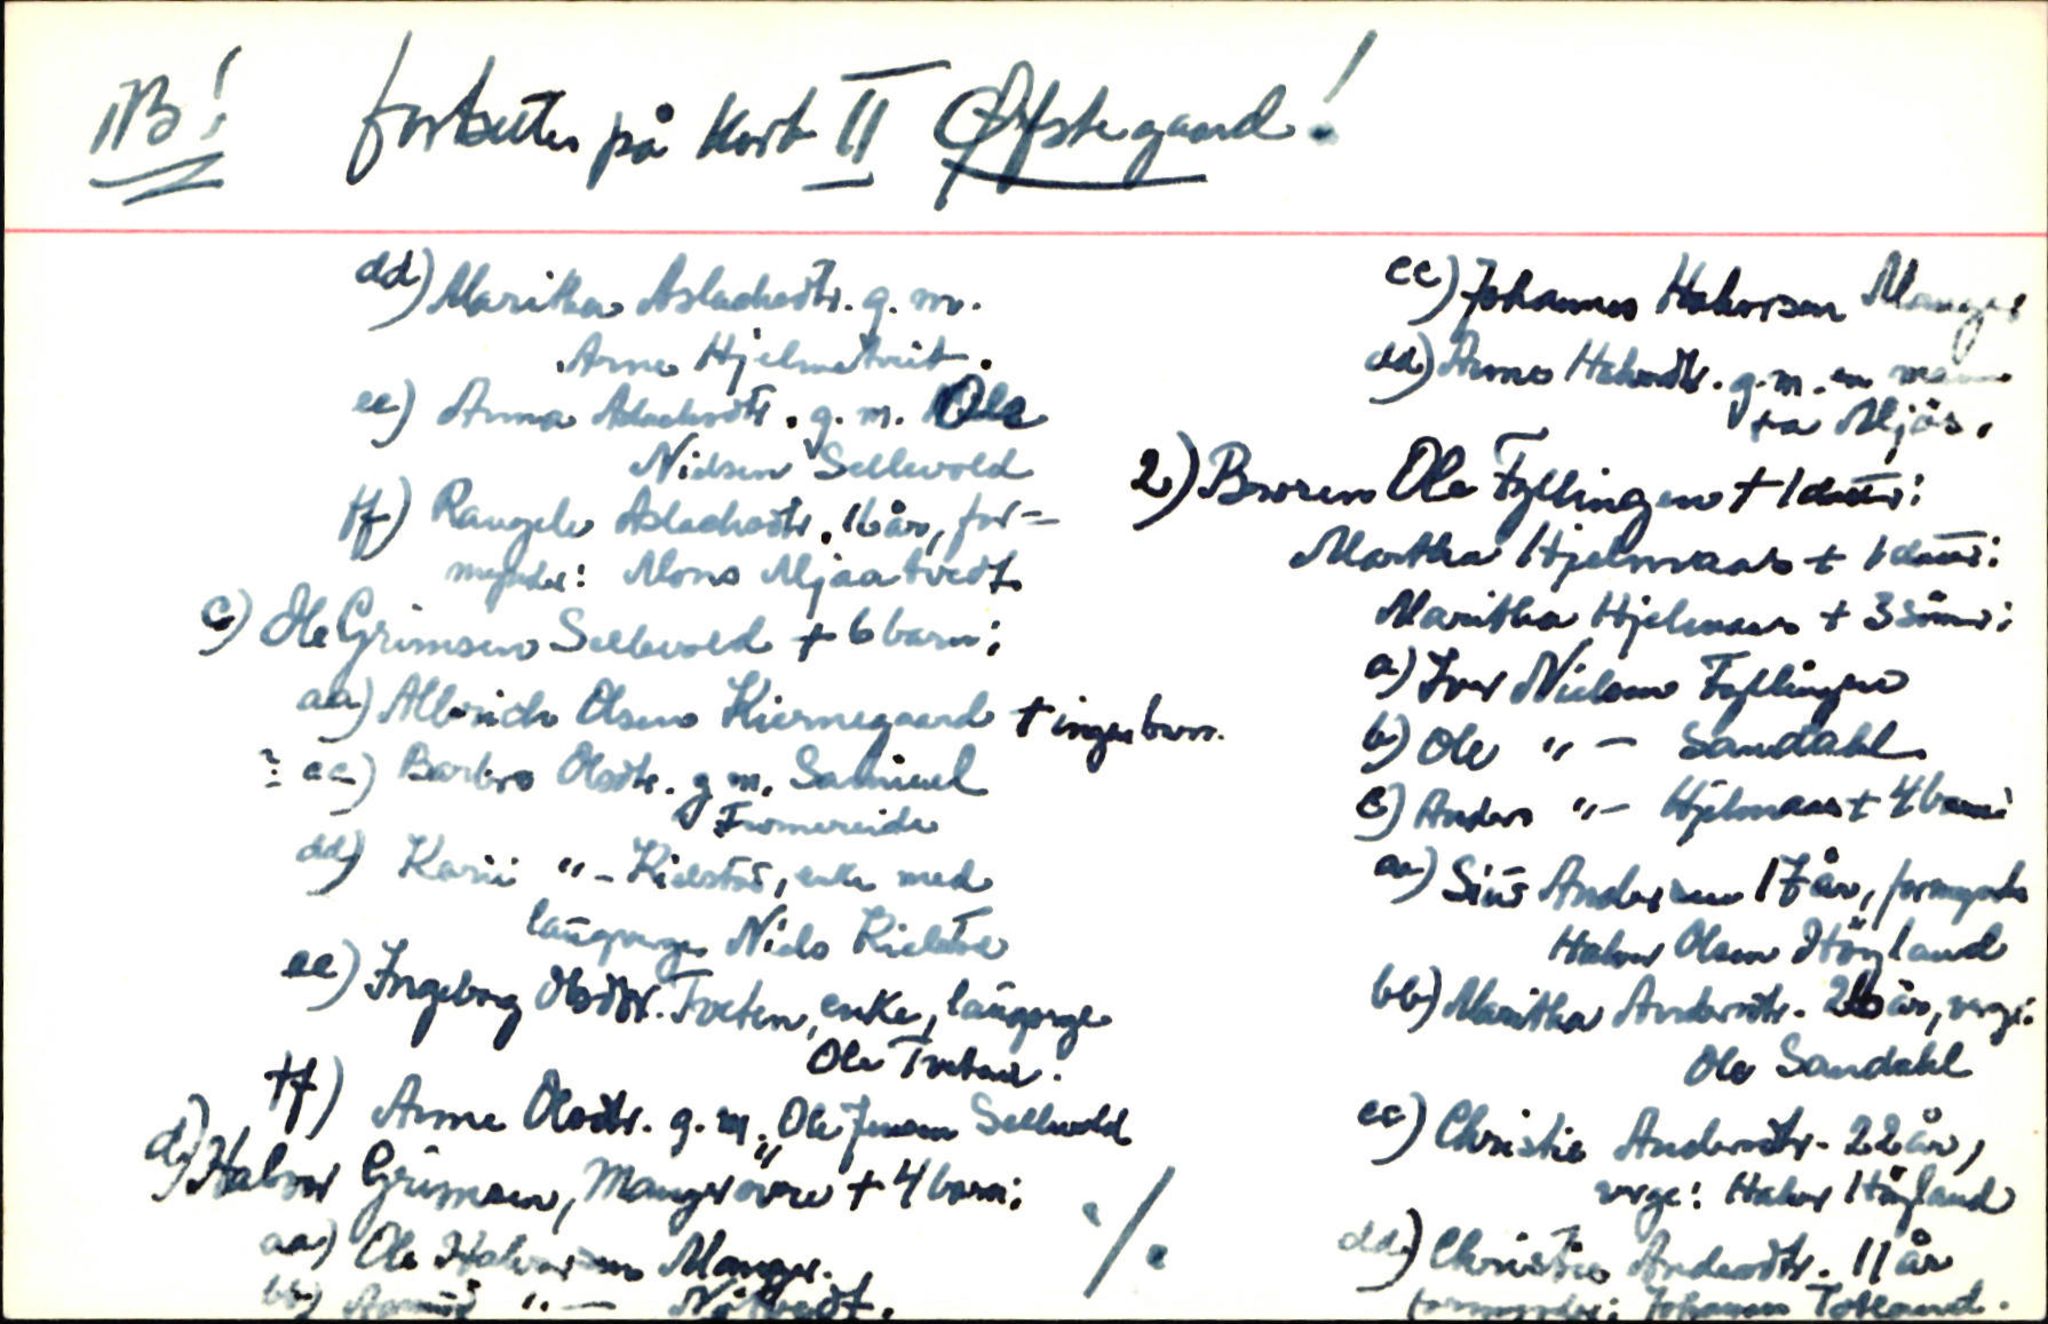 NB! fortsettes på kort II Øfstegaard!
dd) Maritha Aslachsdtr. g. m.
Arne Hjelmetveit.
ee) Anna Aslachsdtr. g. m. Ole
Nielsen Sellevold
ff) Rangele Aslachsdtr. 16 år, for-
mynder: Mons Mjaatvedt.
c) Ole Grimsen Sellevold + 6 barn:
aa) Albrich Olsen Kiernegaard + ingen barn.
?: cc) Barbro Olsdtr. g. m. Samuel
Fromereide
dd) Karii " - Kielstrø, enke med
laugverge Niels
ee) Ingeborg Olsdtr. Tveten, enke, laugverge
Ole Tveten.
ff) Anne Olsdtr. g. m. Ole Jensen Sellevold
d) Halvor Grimsen, Manger øvre + 4 barn:
aa) Ole Halvorsen Manger.
bb) " -
./.
cc) Johannes Halvorsen Manger
dd) Anne Halvordtr. g. m. en mann
fra Mjøs.
2) Broren Ole Fyllingen + 1 datter:
Martha Hjelmaas + 1 datter:
Maritha Hjelmaas + 3 sönner:
a) Iver Nielsen Fyllingen
b) Ole " - Sandahl
c) Anders " - Hjelmaas + 4 barn:
aa) Siur Andersen 17 år, formynder
Halvor Olsen Högland
bb) Maritha Andersdtr. 26 år, verge:
Ole Sandahl
cc) Christie Andersdtr. 22 år,
verge: Halvor Högland
dd) Christie Andersdtr. 11 år
formynder: Johannes Totland.